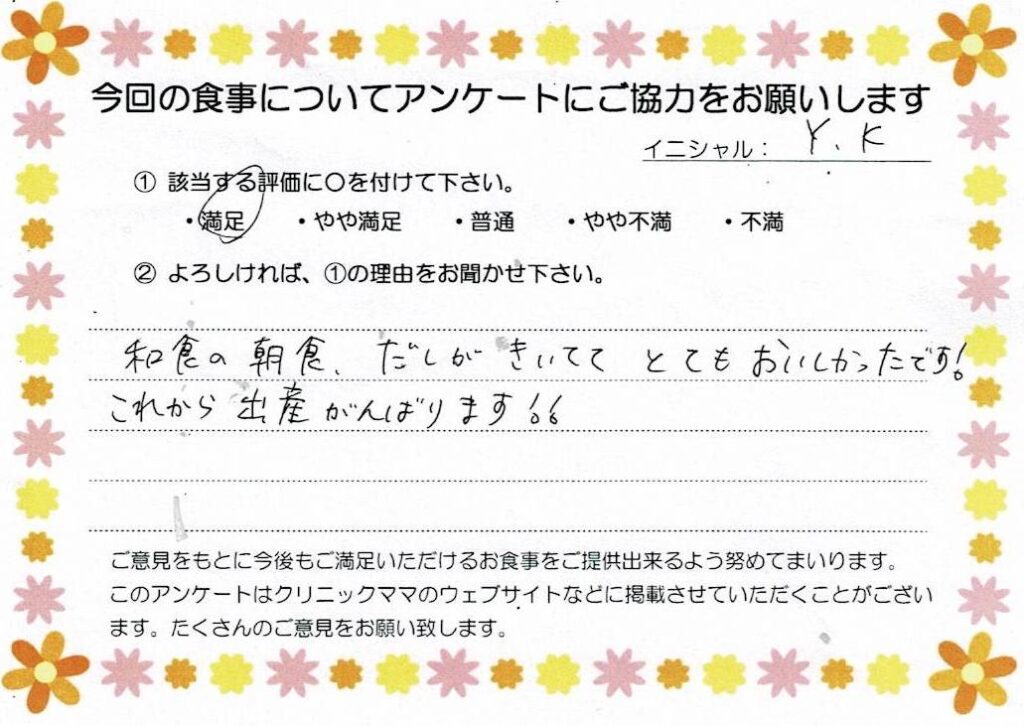 今回の食事についてアンケートにご協力をお願いします
イニシャル： Y. K
① 該当する評価に〇を付けて下さい。
・満足 ・やや満足 ・普通 ・やや不満 ・不満
② よろしければ、①の理由をお聞かせ下さい。
和食の朝食、だしがきいてて とてもおいしかったです!
これから出産がんばります!!
ご意見をもとに今後もご満足いただけるお食事をご提供出来るよう努めてまいります。
このアンケートはクリニックママのウェブサイトなどに掲載させていただくことがござい
ます。たくさんのご意見をお願い致します。